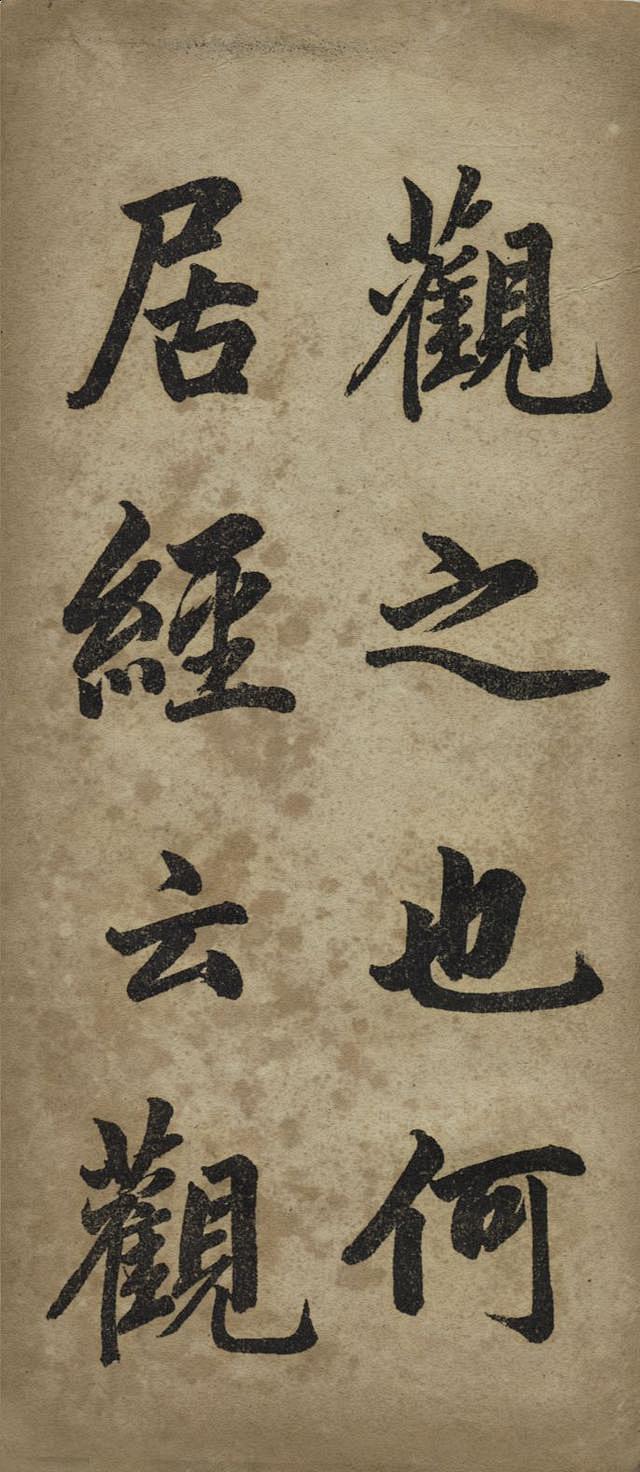 觀之也何
居經云觀